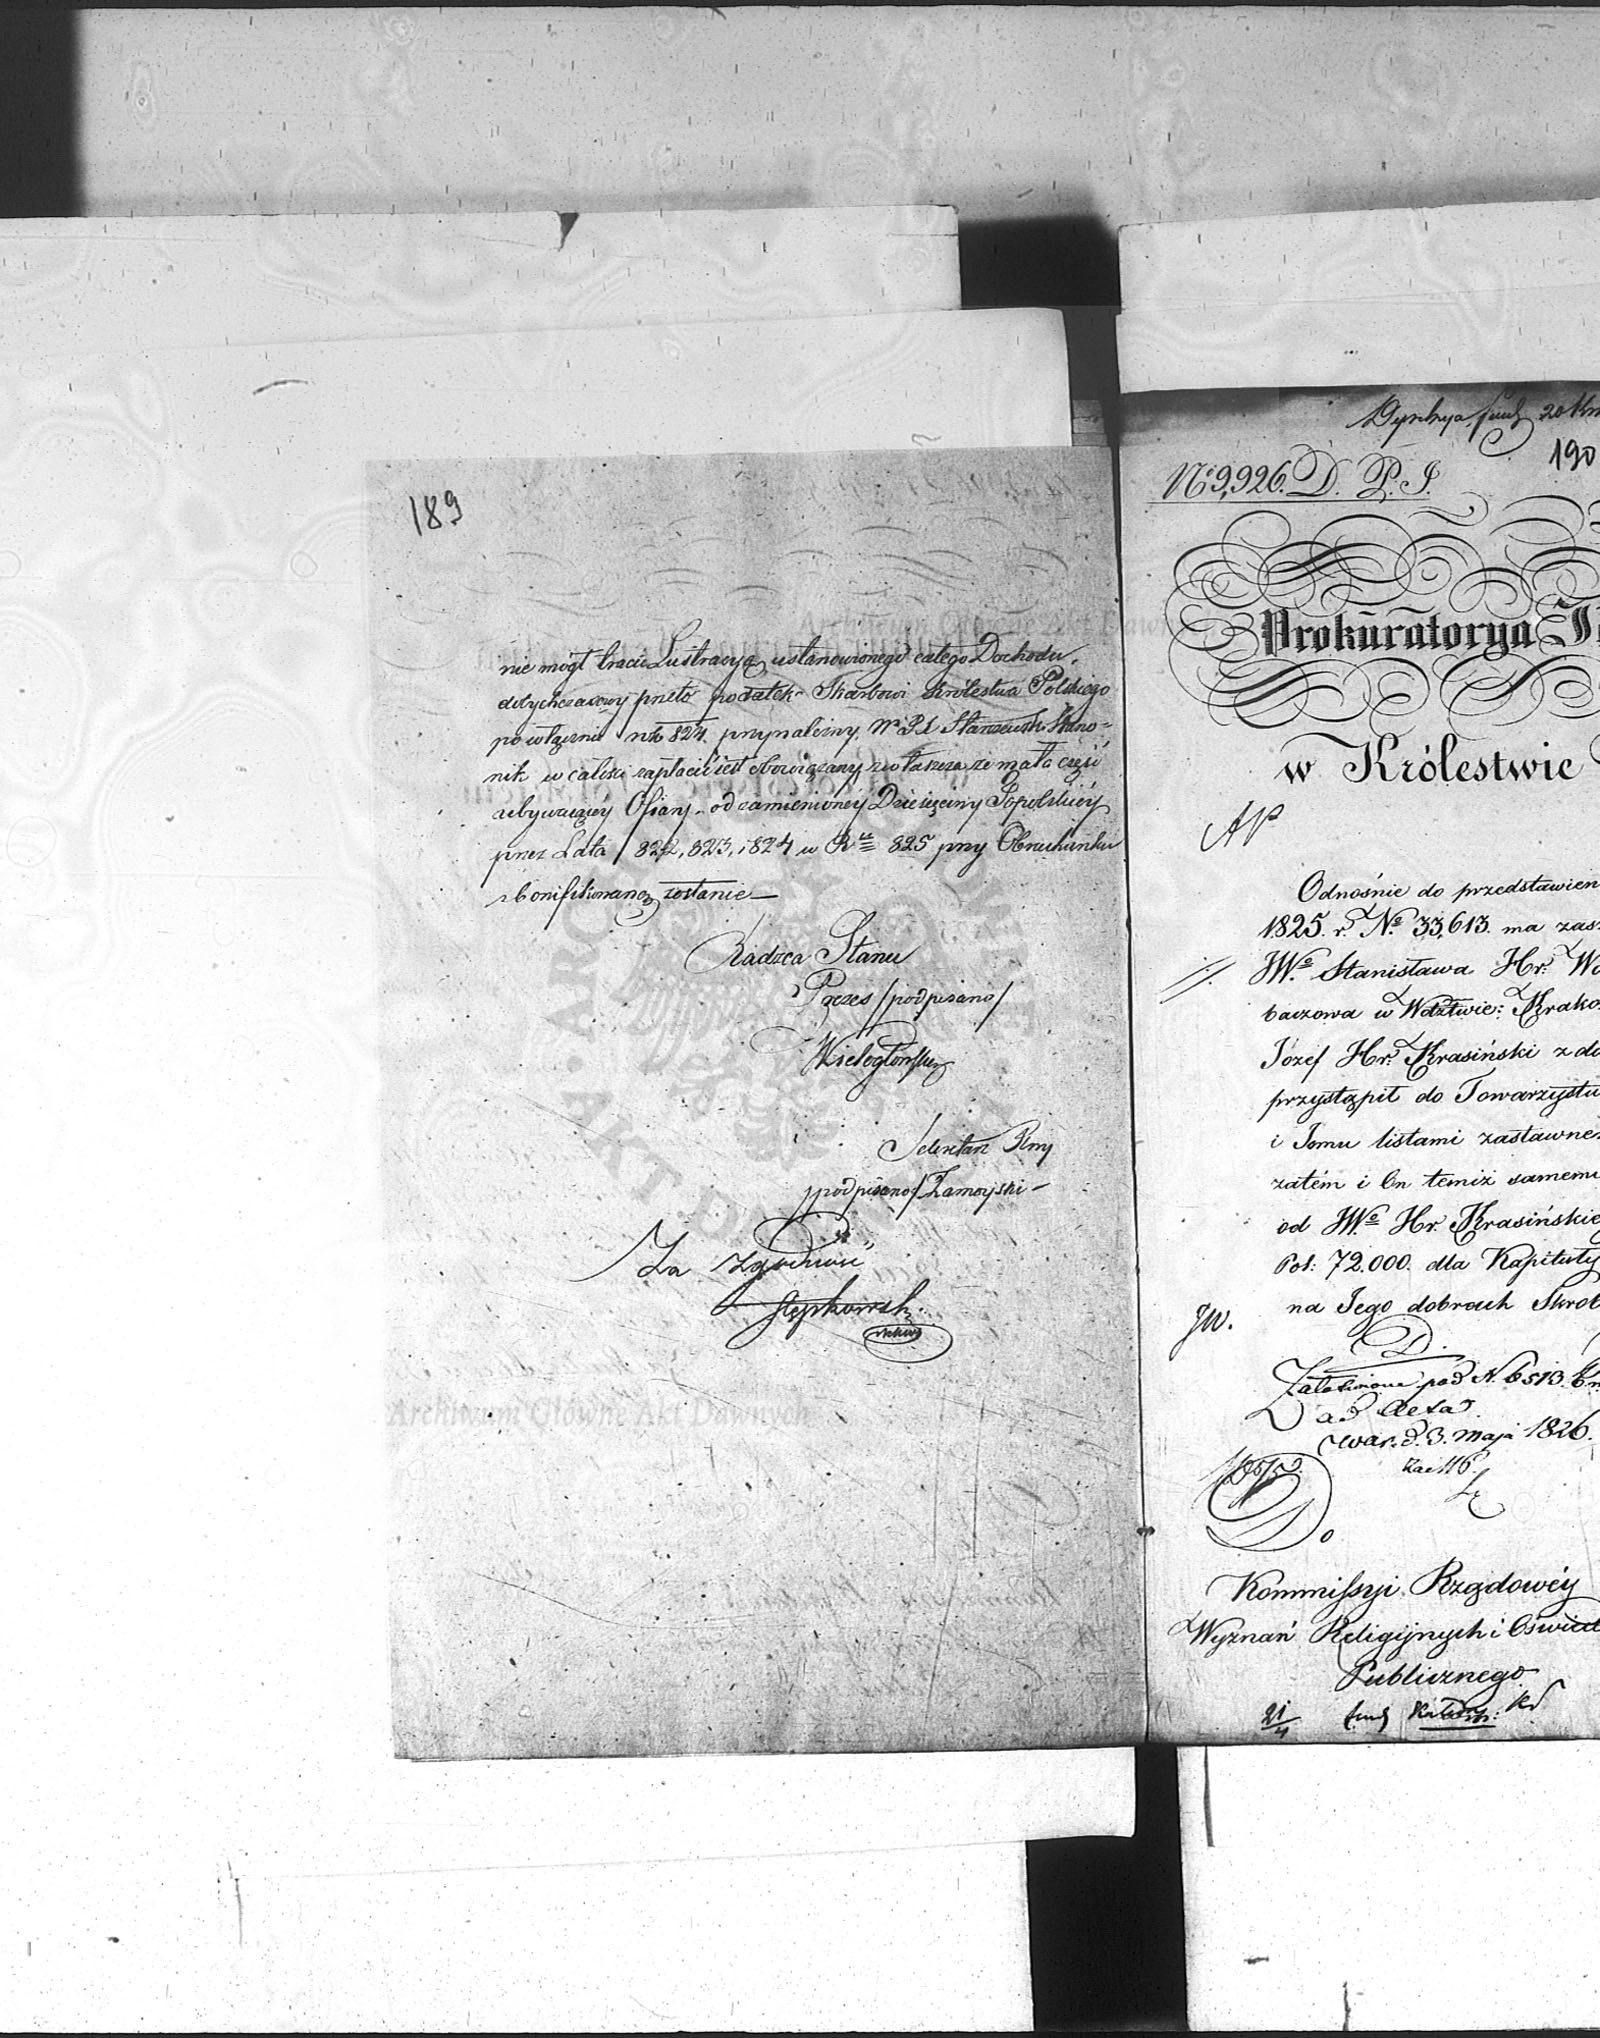 189
nie mógł tracić Lustracyą ustanowionego całego Dochodu,
dotychczasowy przeto podatek Skarbowi Królestwa Polskiego
po włącznie rok 824. przynależny, W. JX Staszewski Kano=
nik w całości zapłacić iest obowiązany zwłaszcza że mała część
zbywaiącey Ofiary od zamienioney Dziesięciny Topolskiey
przez Lata 1822, 823, i 824 w Rku 825 przy Obrachunku
zbonifikowaną zostanie —
Radzca Stanu
Prezes /podpisano/
Wielogłowski
Sekretarz Jlny
/podpisano/ Zamoyski —
Za Zgodność
Stępkowski
Archiwum Główne Akt Dawnych
190
No 9,926. D. P. J.
Prokuratorya
w Królestwie
Odnośnie do przedstawien
1825. r. No 33,613. ma zas
JWo Stanisława Hr:
baczowa w Wdztwie: Krako
Józef Hr. Krasiński z do
przystąpił do Towarzystw
i Jemu listami zastawne
zatém i On temiż samemi
od JWo Hr. Krasińskie
Pol: 72.000. dla Kapituły
JW. na Jego dobrach Skrob
D.
Załatwione pod N. 6513.
ad acta.
War. d. 3. maja 1826.
Kommissyi Rządowéy
Wyznań Religijnych i Oświec
Publicznego
21/4